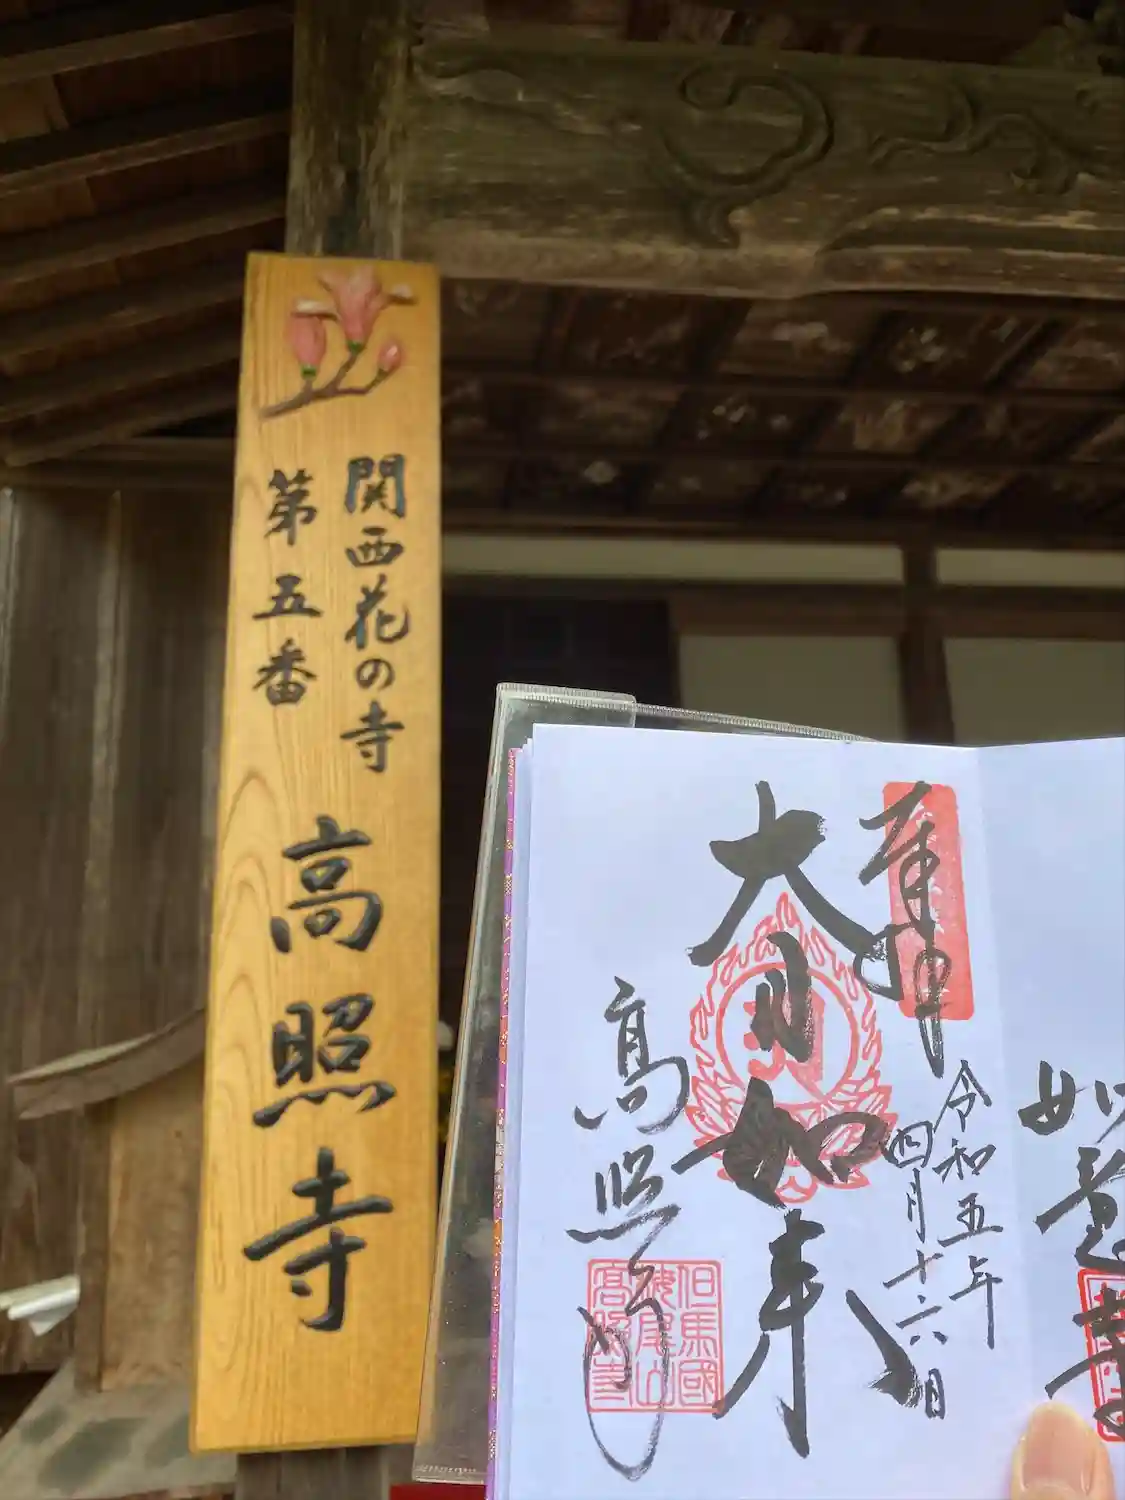 関西花の寺
第五番
高照寺
奉拝
令和五年
四月十六日
大日如来
高照寺
但馬國
高照寺
如意